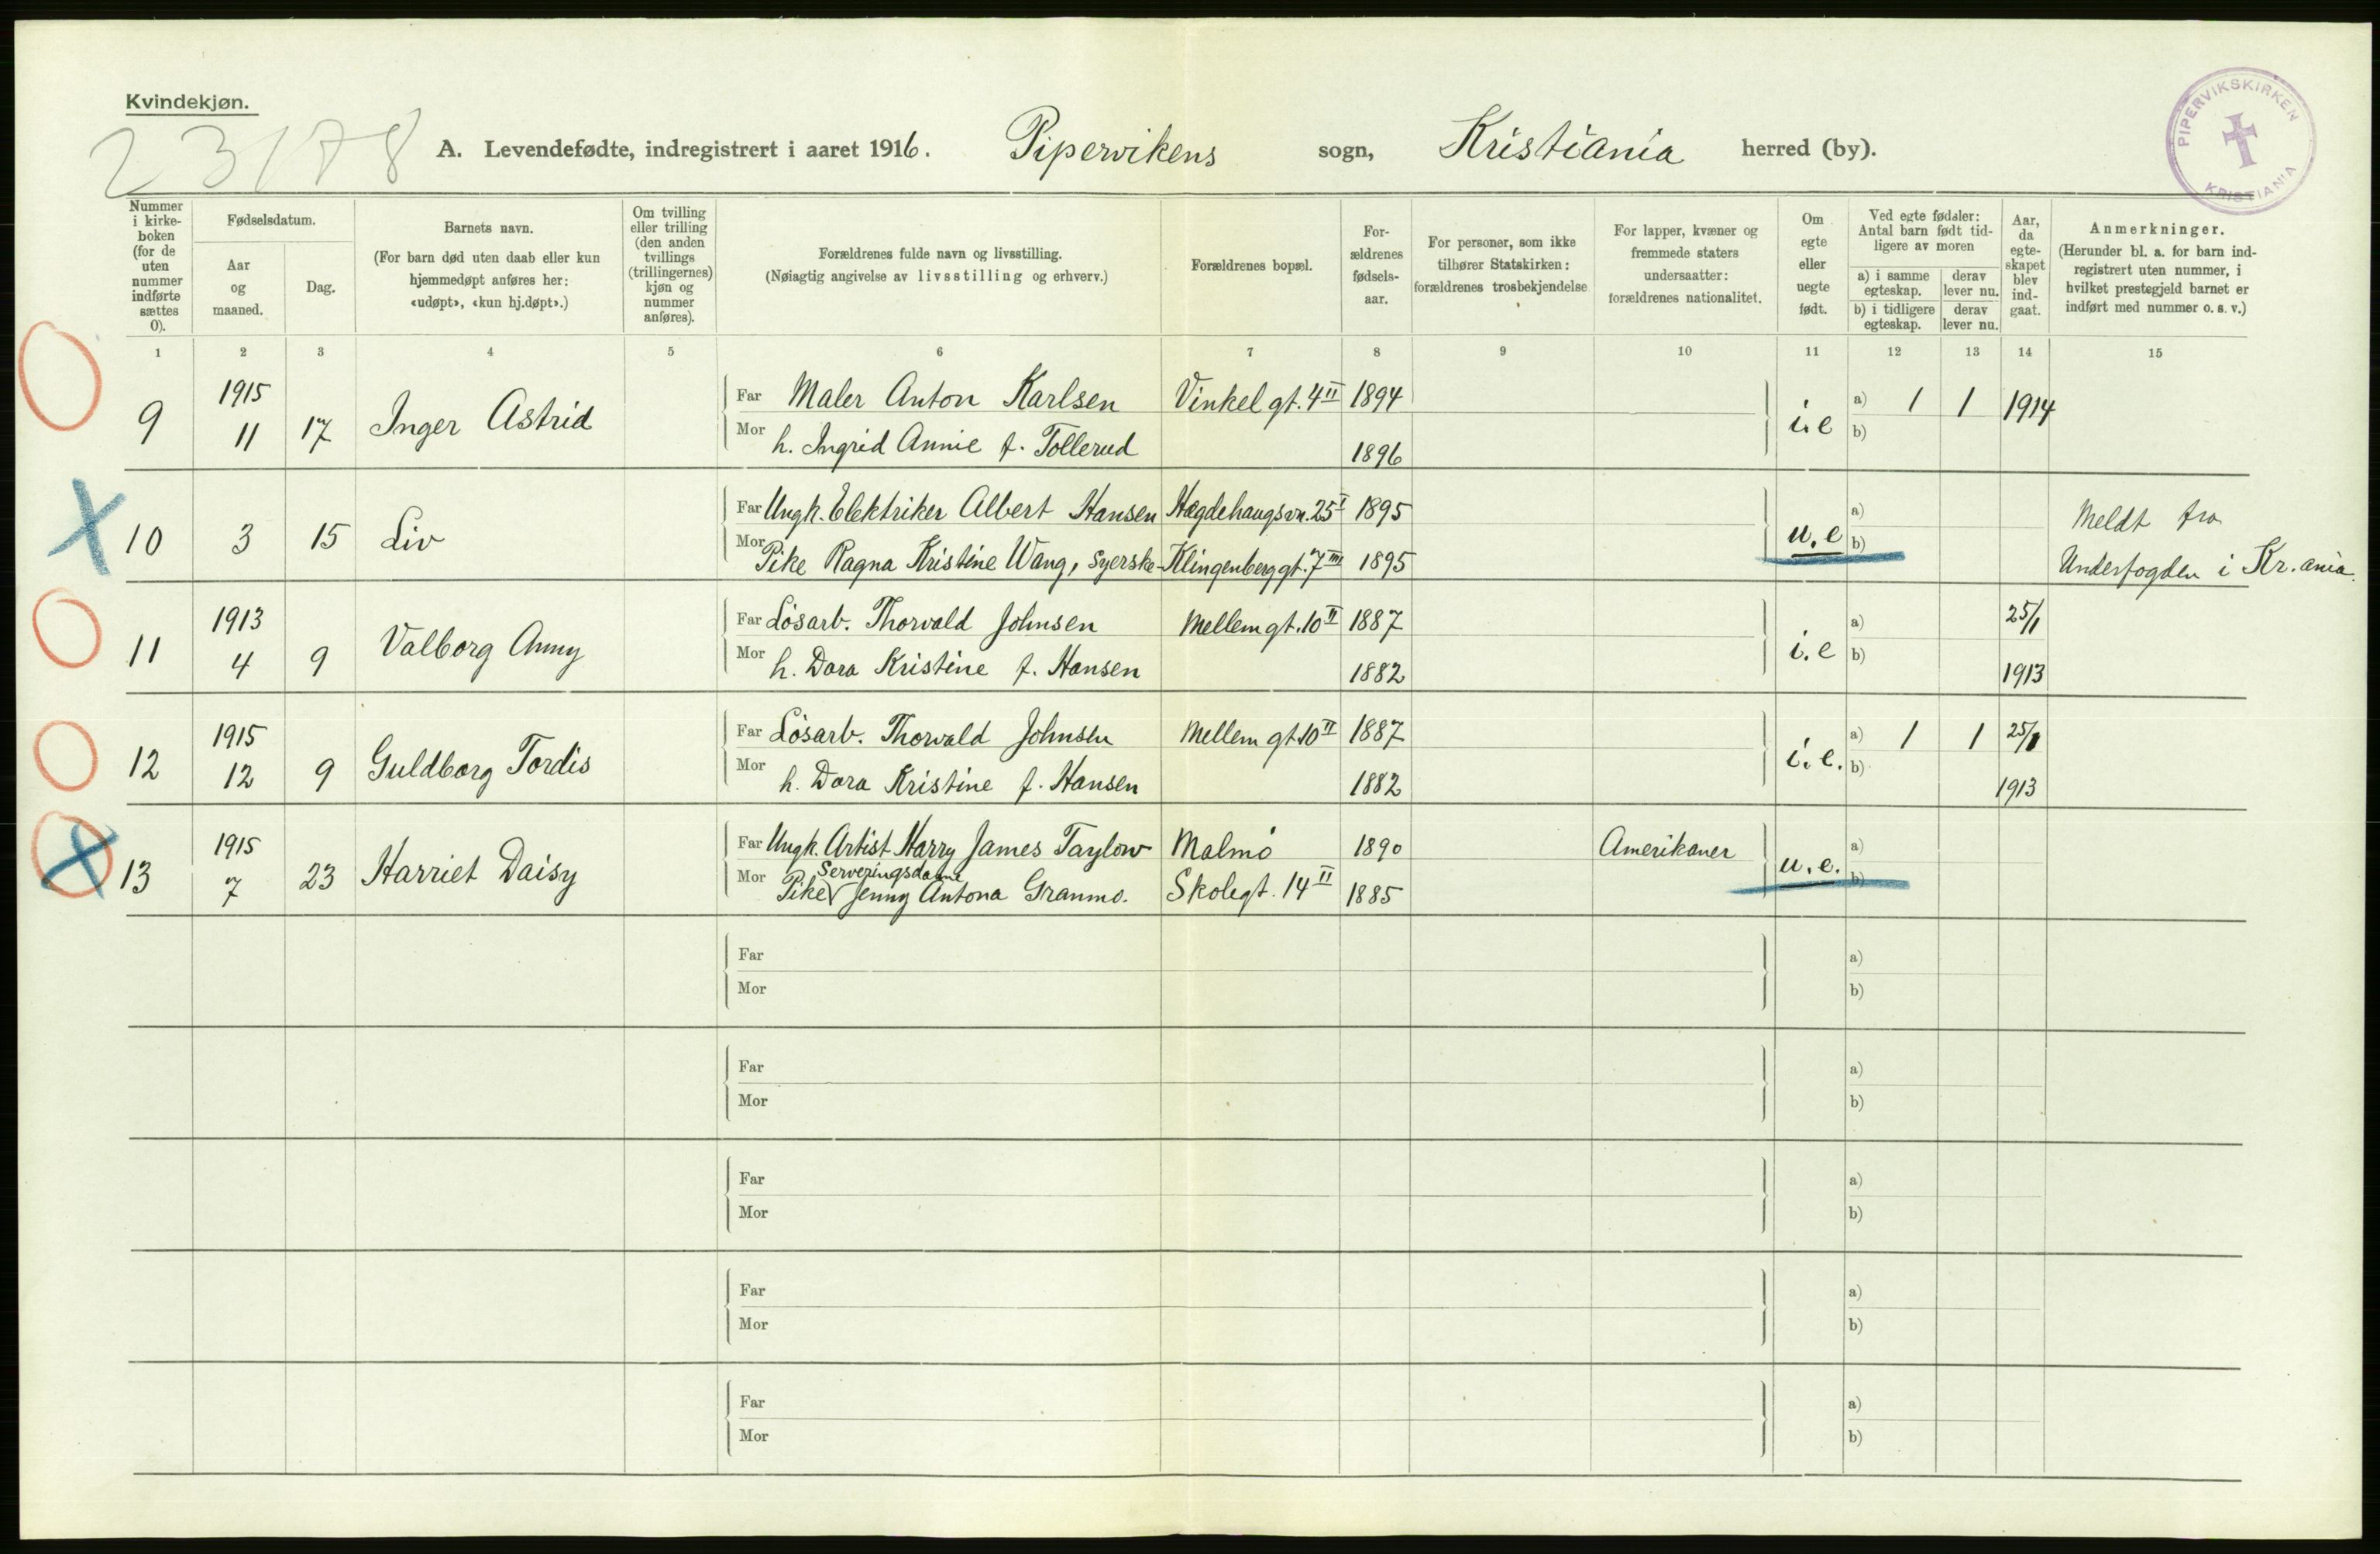 Kvindekjøn.
23178
A. Levendefødte, indregistrert i aaret 1916. Pipervikens sogn, Kristiania herred (by).
PIPERVIKSKIRKEN
KRISTIANIA
Nummer i kirke-boken (for de uten nummer indførte sættes 0).
Fødselsdatum.
Aar og maaned.
Dag.
Barnets navn.
(For barn død uten daab eller kun hjemmedøpt anføres her: «udøpt», «kun hj.døpt».)
Om tvilling eller trilling (den anden tvillings (trillingernes) kjøn og nummer anføres).
Forældrenes fulde navn og livsstilling.
(Nøiagtig angivelse av livsstilling og erhverv.)
Forældrenes bopæl.
For-ældrenes fødsels-aar.
For personer, som ikke tilhører Statskirken: forældrenes trosbekjendelse
For lapper, kvæner og fremmede staters undersaatter: forældrenes nationalitet.
Om egte eller uegte født.
Ved egte fødsler: Antal barn født tid-ligere av moren
a) i samme egteskap.
derav lever nu.
b) i tidligere egteskap.
derav lever nu.
Aar, da egte-skapet blev ind-gaat.
Anmerkninger.
(Herunder bl. a. for barn ind-registrert uten nummer, i hvilket prestegjeld barnet er indført med nummer o. s. v.)
1 2 3 4 5 6 7 8 9 10 11 12 13 14 15
1915
9 11 17 Inger Astrid
Far Maler Anton Karlsen Vinkel gt. 4 II 1894
Mor h. Ingrid Annie f. Tollerud 1896
i.e a) 1 1 1914
b)
10 3 15 Liv
Far Ungk. Elektriker Albert Hansen Hægdehaugsvn. 25 I 1895
Mor Pike Ragna Kristine Wang, Syerske Klingenberggt. 7 III 1895
u.e a)
b)
Meldt fra
Underfogden i Kr.ania.
1913
11 4 9 Valborg Anny
Far Løsarb. Thorvald Johnsen Mellemgt. 10 II 1887
Mor h. Dora Kristine f. Hansen 1882
i.e a)
b)
25/1
1913
1915
12 12 9 Guldborg Tordis
Far Løsarb. Thorvald Johnsen Mellem gt. 10 II 1887
Mor h. Dora Kristine f. Hansen 1882
i.e. a) 1 1 25/1
b) 1913
1915
13 7 23 Harriet Daisy
Far Ungk. Artist Harry James Taylow Malmø 1890 Amerikaner
Serveringsdame
Mor Pike V Jenny Antona Granmo. Skolegt. 14 II 1885
u.e. a)
b)
Far a)
Mor b)
Far a)
Mor b)
Far a)
Mor b)
Far a)
Mor b)
Far a)
Mor b)